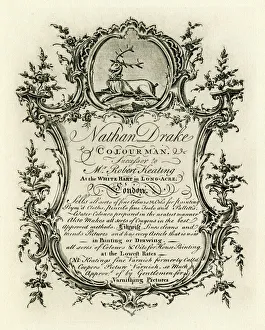 Nathan Drake
COLOURMAN,
Successor to
Mr. Robert Keating
At the WHITE HART in LONG-ACRE,
London.
Sells all sorts of fine Colours & Oils for Painting
Cloths, Pencils fine Tools and Pallets
Water Colours prepared in the neatest manner
Also Makes all sorts of Crayons in the best
Approved methods. Likewise
Pictures and
in Painting or Drawing,
all sorts of Colours & Oils for House Painting
at the Lowest Rates
NB. Keatings fine Varnish formerly Calld
Coopers Picture Varnish, so Much
Approv'd of by Gentlemen for
Varnishing Pictures